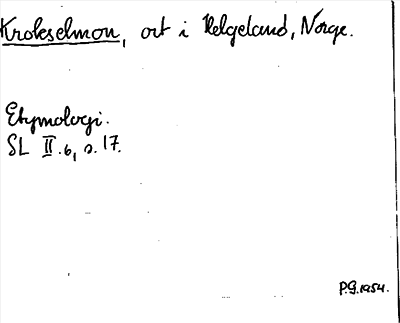 Krokselmon, ort i Helgeland, Norge.
Etymologi.
SL II.6, s. 17.
P.G. 1954.